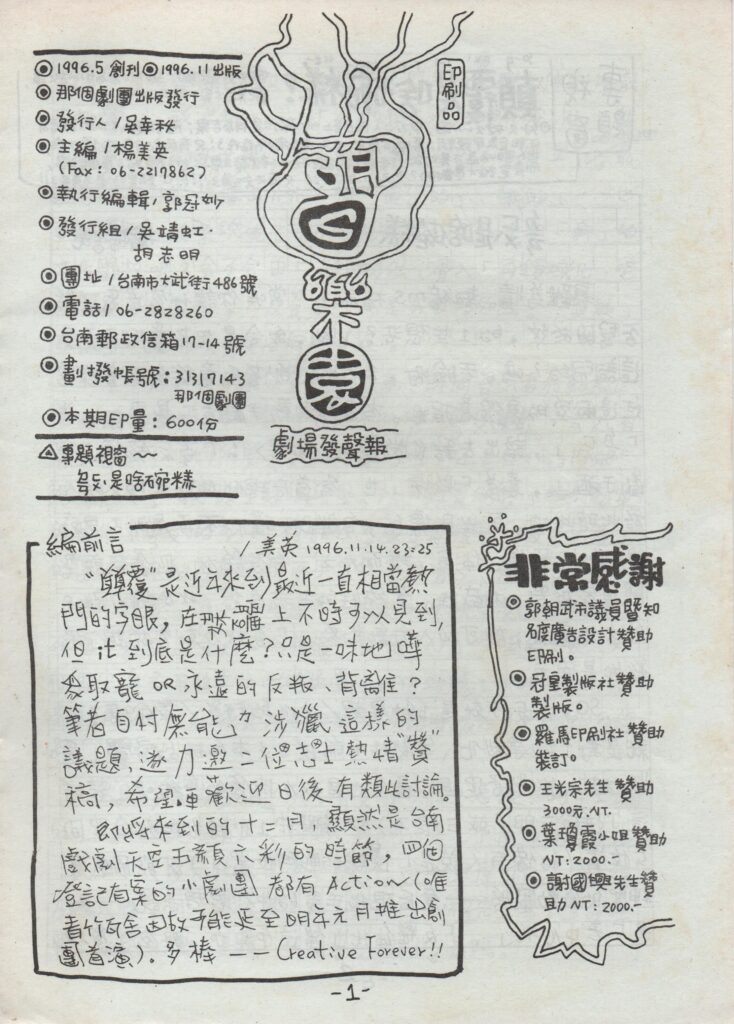 ◎1996.5 創刊 ◎1996.11 出版
◎那個劇團出版發行
◎發行人/吳幸秋
◎主編/楊美英
(Fax: 06-2217862)
◎執行編輯/郭冠妙
◎發行組/吳靖虹·
胡志明
◎團址/台南市大武街486號
◎電話/06-2828260
◎台南郵政信箱17-14號
◎劃撥帳號:31317143
那個劇團
◎本期印量:600份
△專題視窗~~
是啥碗糕
印刷品
樂
園
劇場發聲報
編前言
/美英 1996.11.14.23:25
"顛覆"是近年來到最近一直相當熱
門的字眼,在 上不時可以見到,
但it到底是什麼?只是一味地嘩
眾取寵 OR 永遠的反叛、背離?
筆者自忖無能力涉獵這樣的
議題,遂力邀二位 熱情"贊"
稿,希望再歡迎日後有類此討論。
即將來到的十二月,顯然是台南
戲劇天空五顏六彩的時節,四個
登記有案的小劇團都有Action(唯
青竹 舍因故可能延至明年元月推出創
團首演)。多棒——Creative Forever!!
非常感謝
◎郭朝武市議員暨知
名度廣告設計贊助
印刷。
◎冠皇製版社贊助
製版。
◎羅馬印刷社贊助
裝訂。
◎王光宗先生贊助
3000元.NT.
◎葉瓊霞小姐贊助
NT:2000.-
◎謝國興先生贊
助NT:2000.-
-1-